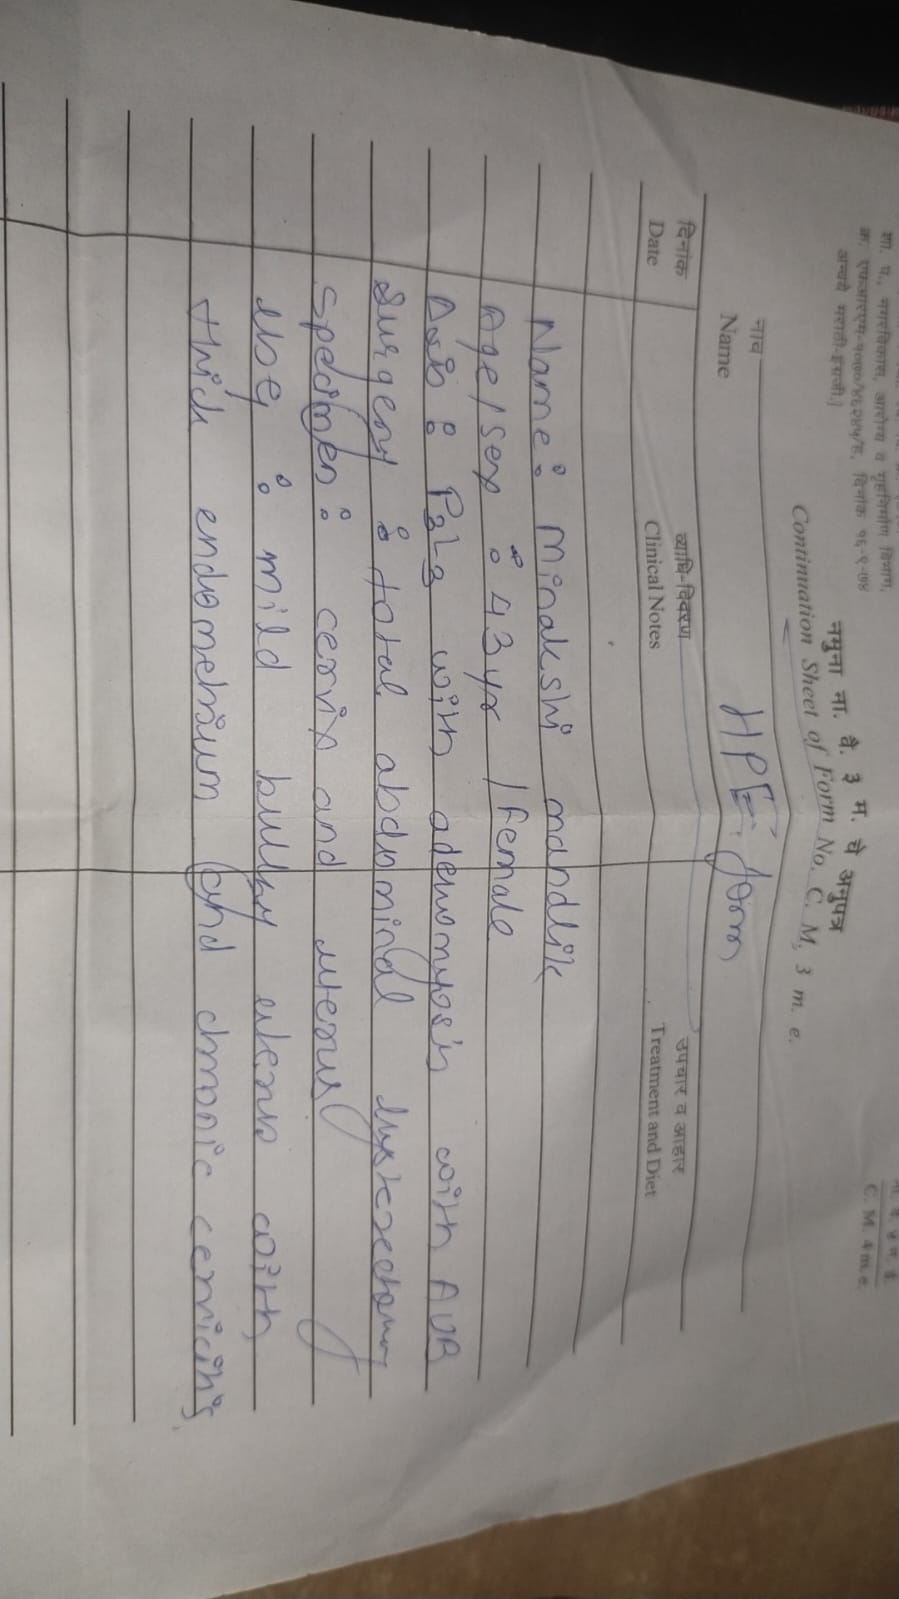 शा. प., नगरविकास, आरोग्य व गृहनिर्माण विभाग,
अन्वये मराठी-इंग्रजी.]
C. M. 4 m. e.
नमुना ना. वै. ३ म. चे अनुपत्र
Continuation Sheet of Form No. C. M, 3 m. e.
नाव
Name
HPE form
दिनांक व्याधि-विवरण उपचार व आहार
Date Clinical Notes Treatment and Diet
Name: Minakshi mandlik
Age/sex : 43yr / Female
P2L2 with adenomyosis with AUB
Surgery : total abdominal hysterectomy
Specimen : cervix and uterus
Usg : mild bulky uterus with
thick endometrium and chronic cervicitis